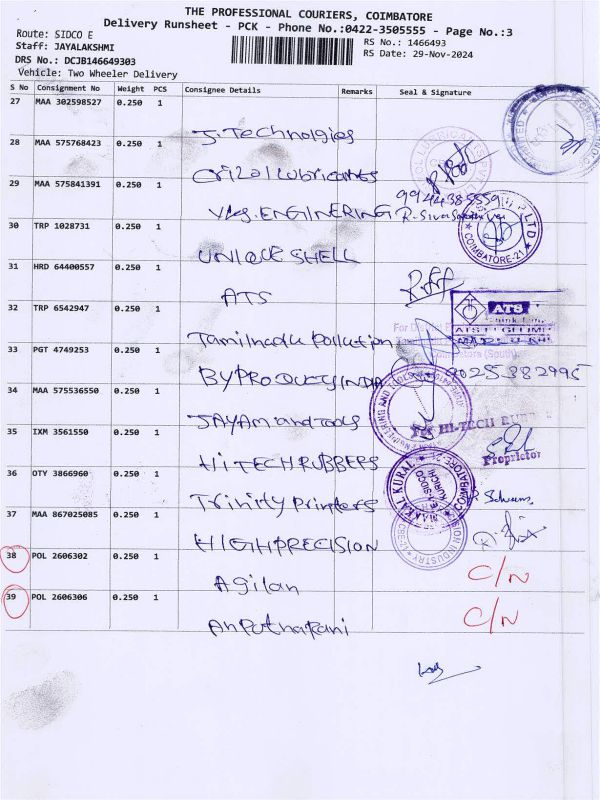 THE PROFESSIONAL COURIERS, COIMBATORE
Delivery Runsheet - PCK - Phone No.:0422-3505555 - Page No.:3
Route: SIDCO E
Staff: JAYALAKSHMI
DRS No.: DCJB146649303
Vehicle: Two Wheeler Delivery
RS No.: 1466493
RS Date: 29-Nov-2024
S No Consignment No Weight PCS Consignee Details Remarks Seal & Signature
27 MAA 302598527 0.250 1
J. Technolgies
28 MAA 575768423 0.250 1
Crizol Lubricants
29 MAA 575841391 0.250 1
9944385559
ENGINERING
30 TRP 1028731 0.250 1
COIMBATORE-21
UNIQUE SHELL
31 HRD 64400557 0.250 1
ATS
ATS
32 TRP 6542947 0.250 1
Tamilnadu Pollution
(South)
33 PGT 4749253 0.250 1
BYPRODUCTS INDIA
9025382995
34 MAA 575536550 0.250 1
JAYAM and TOOLS
HI-TECH
35 IXM 3561550 0.250 1
HITECH RUBBERS
Proprietor
36 OTY 3866960 0.250 1
MAKKAL KURAL
SIDCO
KURICHI
COIMBATORE
Trinity Printers
37 MAA 867025085 0.250 1
HIGH PRECISION
38 POL 2606302 0.250 1
C/N
Agilan
39 POL 2606306 0.250 1
C/N